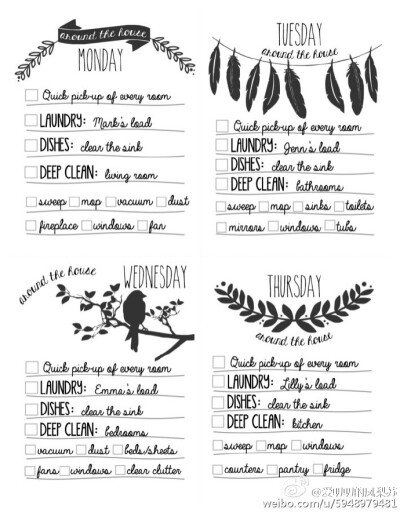 around the house
MONDAY
Quick pick-up of every room
LAUNDRY: Mark's load
DISHES: clear the sink
DEEP CLEAN: living room
sweep mop vacuum dust
fireplace windows fan
TUESDAY
around the house
Quick pick-up of every room
LAUNDRY: Jenn's load
DISHES: clear the sink
DEEP CLEAN: bathrooms
sweep mop sinks toilets
mirrors windows tubs
around the house
WEDNESDAY
Quick pick-up of every room
LAUNDRY: Emma's load
DISHES: clear the sink
DEEP CLEAN: bedrooms
vacuum dust beds/sheets
fans windows clear clutter
THURSDAY
around the house
Quick pick-up of every room
LAUNDRY: Lilly's load
DISHES: clear the sink
DEEP CLEAN: kitchen
sweep mop windows
counters pantry fridge
weibo.com/u/5948979481